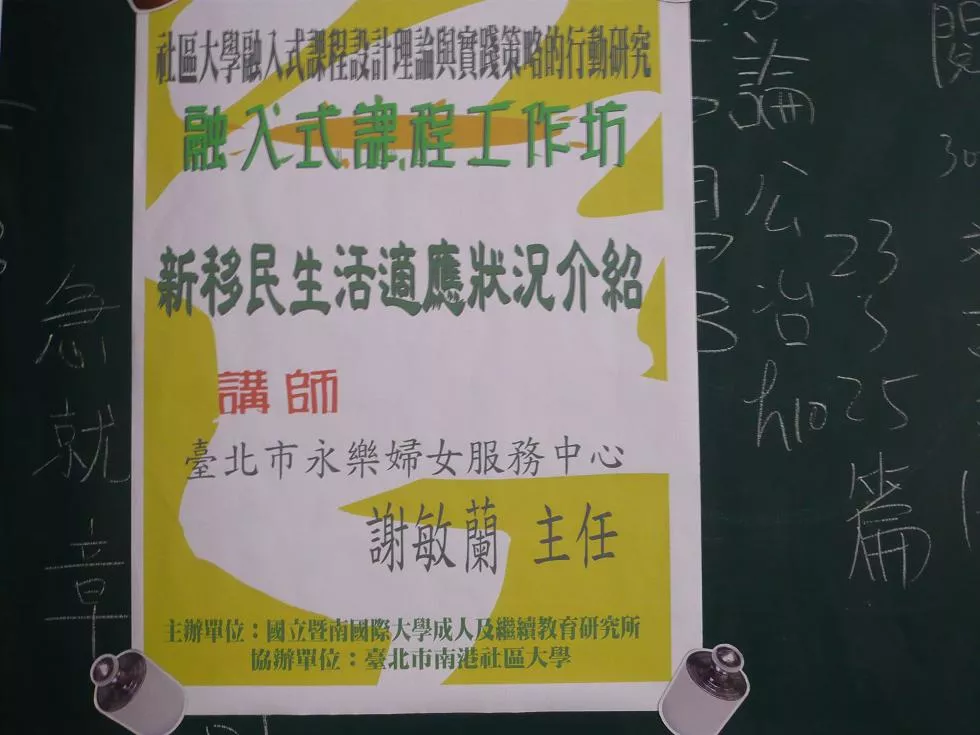 社區大學融入式課程設計理論與實踐策略的行動研究
融入式課程工作坊
新移民生活適應狀況介紹
講師
臺北市永樂婦女服務中心
謝敏蘭 主任
主辦單位：國立暨南國際大學成人及繼續教育研究所
協辦單位：臺北市南港社區大學
急就章
論公治h10
23
25
篇
閱
30